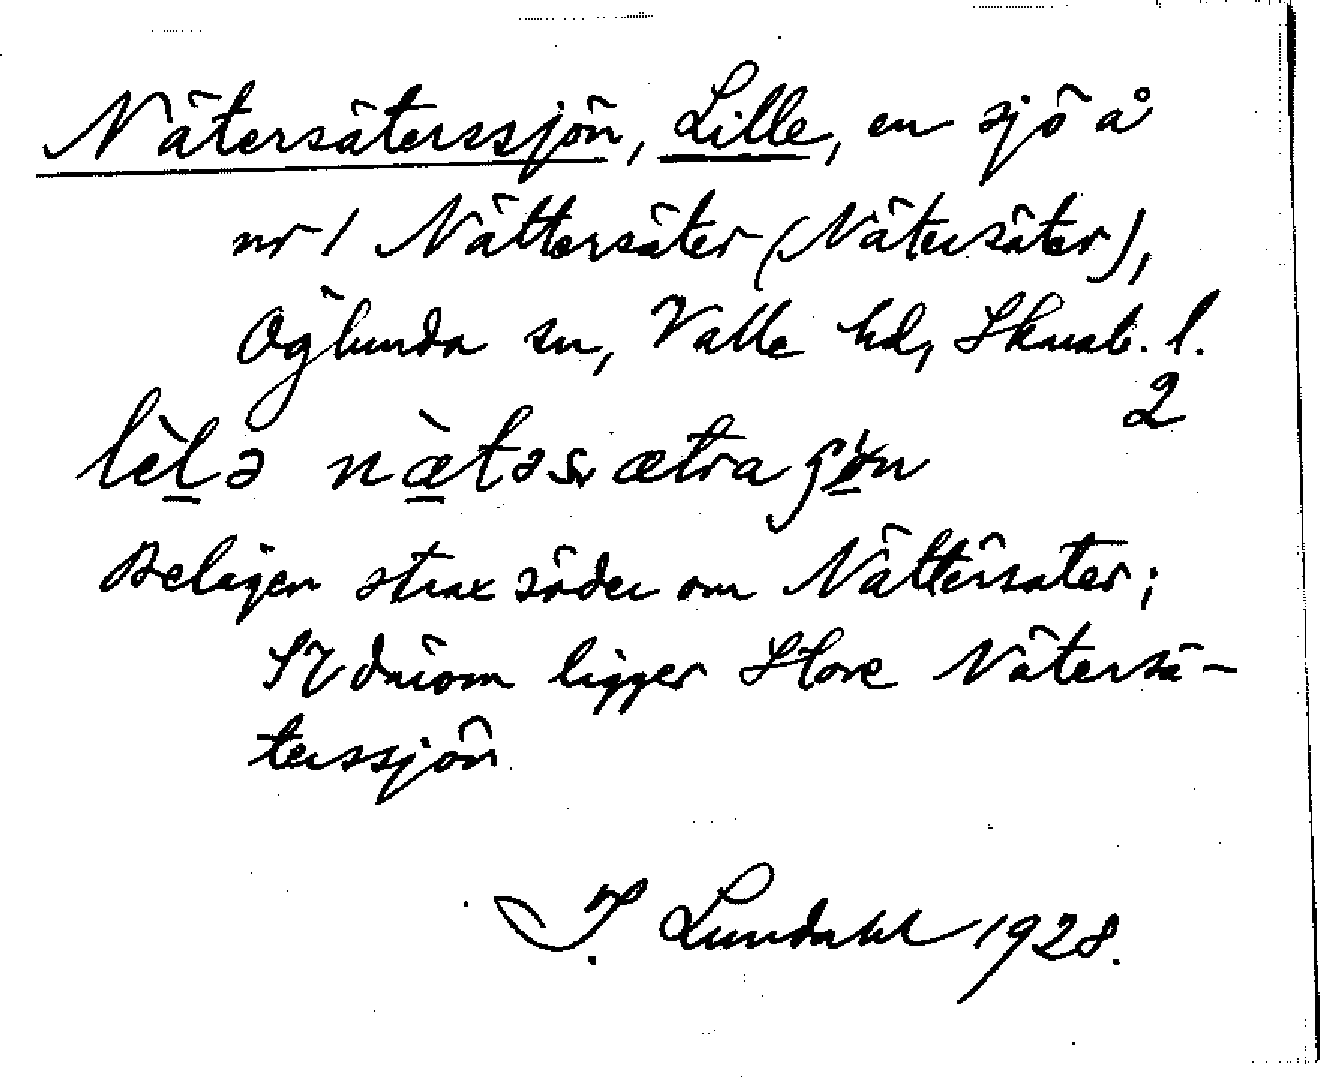 Nätersäterssjön, Lille, en sjö å
nr 1 Nättersäter (Nätersäter),
Öglunda sn, Valle hd, Skarab. l.
2
lèlə næ̀təsætraʃön
Belägen strax söder om Nättersäter;
SV därom ligger Store Nätersä-
terssjön
I. Lundahl 1928.